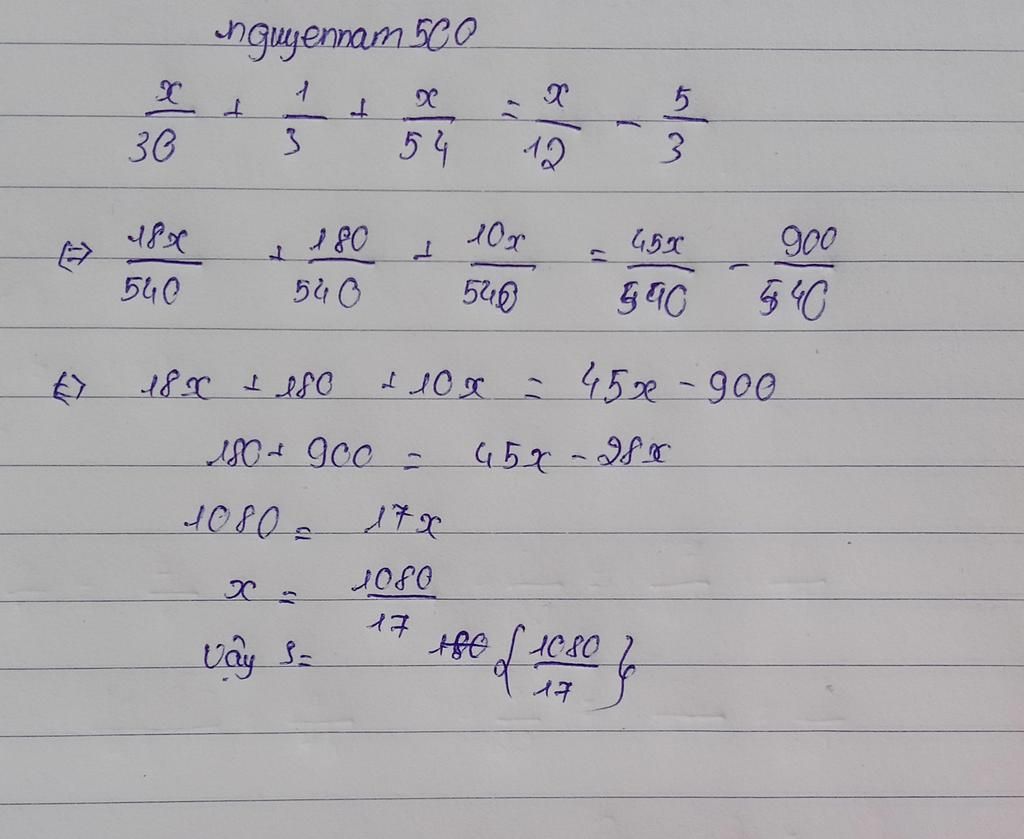 nguyennam500
x/30 + 1/3 + x/54 = x/12 - 5/3
⇔ 18x/540 + 180/540 + 10x/540 = 45x/540 - 900/540
⇔ 18x + 180 + 10x = 45x - 900
180 + 900 = 45x - 28x
1080 = 17x
x = 1080/17
Vậy S = {1080/17}